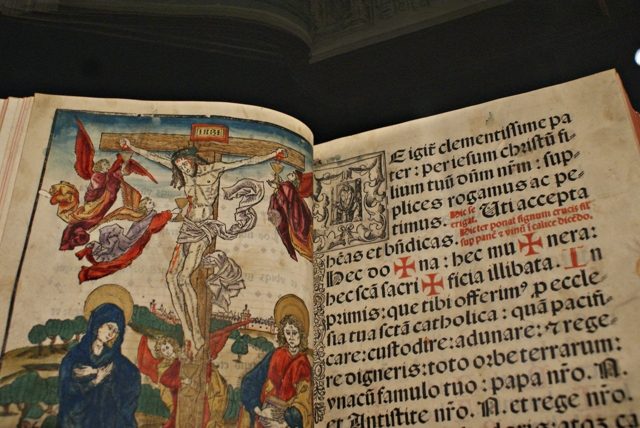 INRI
TE igit̃ clementissime pa
ter : per iesum christũ fi-
lium tuũ dñm nr̃m : sup-
plices rogamus ac pe-
timus. Hic se erigat. Uti accepta
Hic ter ponat signum crucis
heas et bñdicas. sup panẽ & vinũ i calice dicẽdo.
Hec do ✠ na : hec mu ✠ nera :
hec scã sacri ✠ ficia illibata. In
primis : que tibi offerim⁹ p eccle
sia tua sctã catholica : quã pacifi-
care : custodire : adunare : ⁊ rege-
re digneris : toto orbe terrarum :
vnacũ famulo tuo : papa nr̃o. N.
et Antistite nr̃o. N. et rege nr̃o.